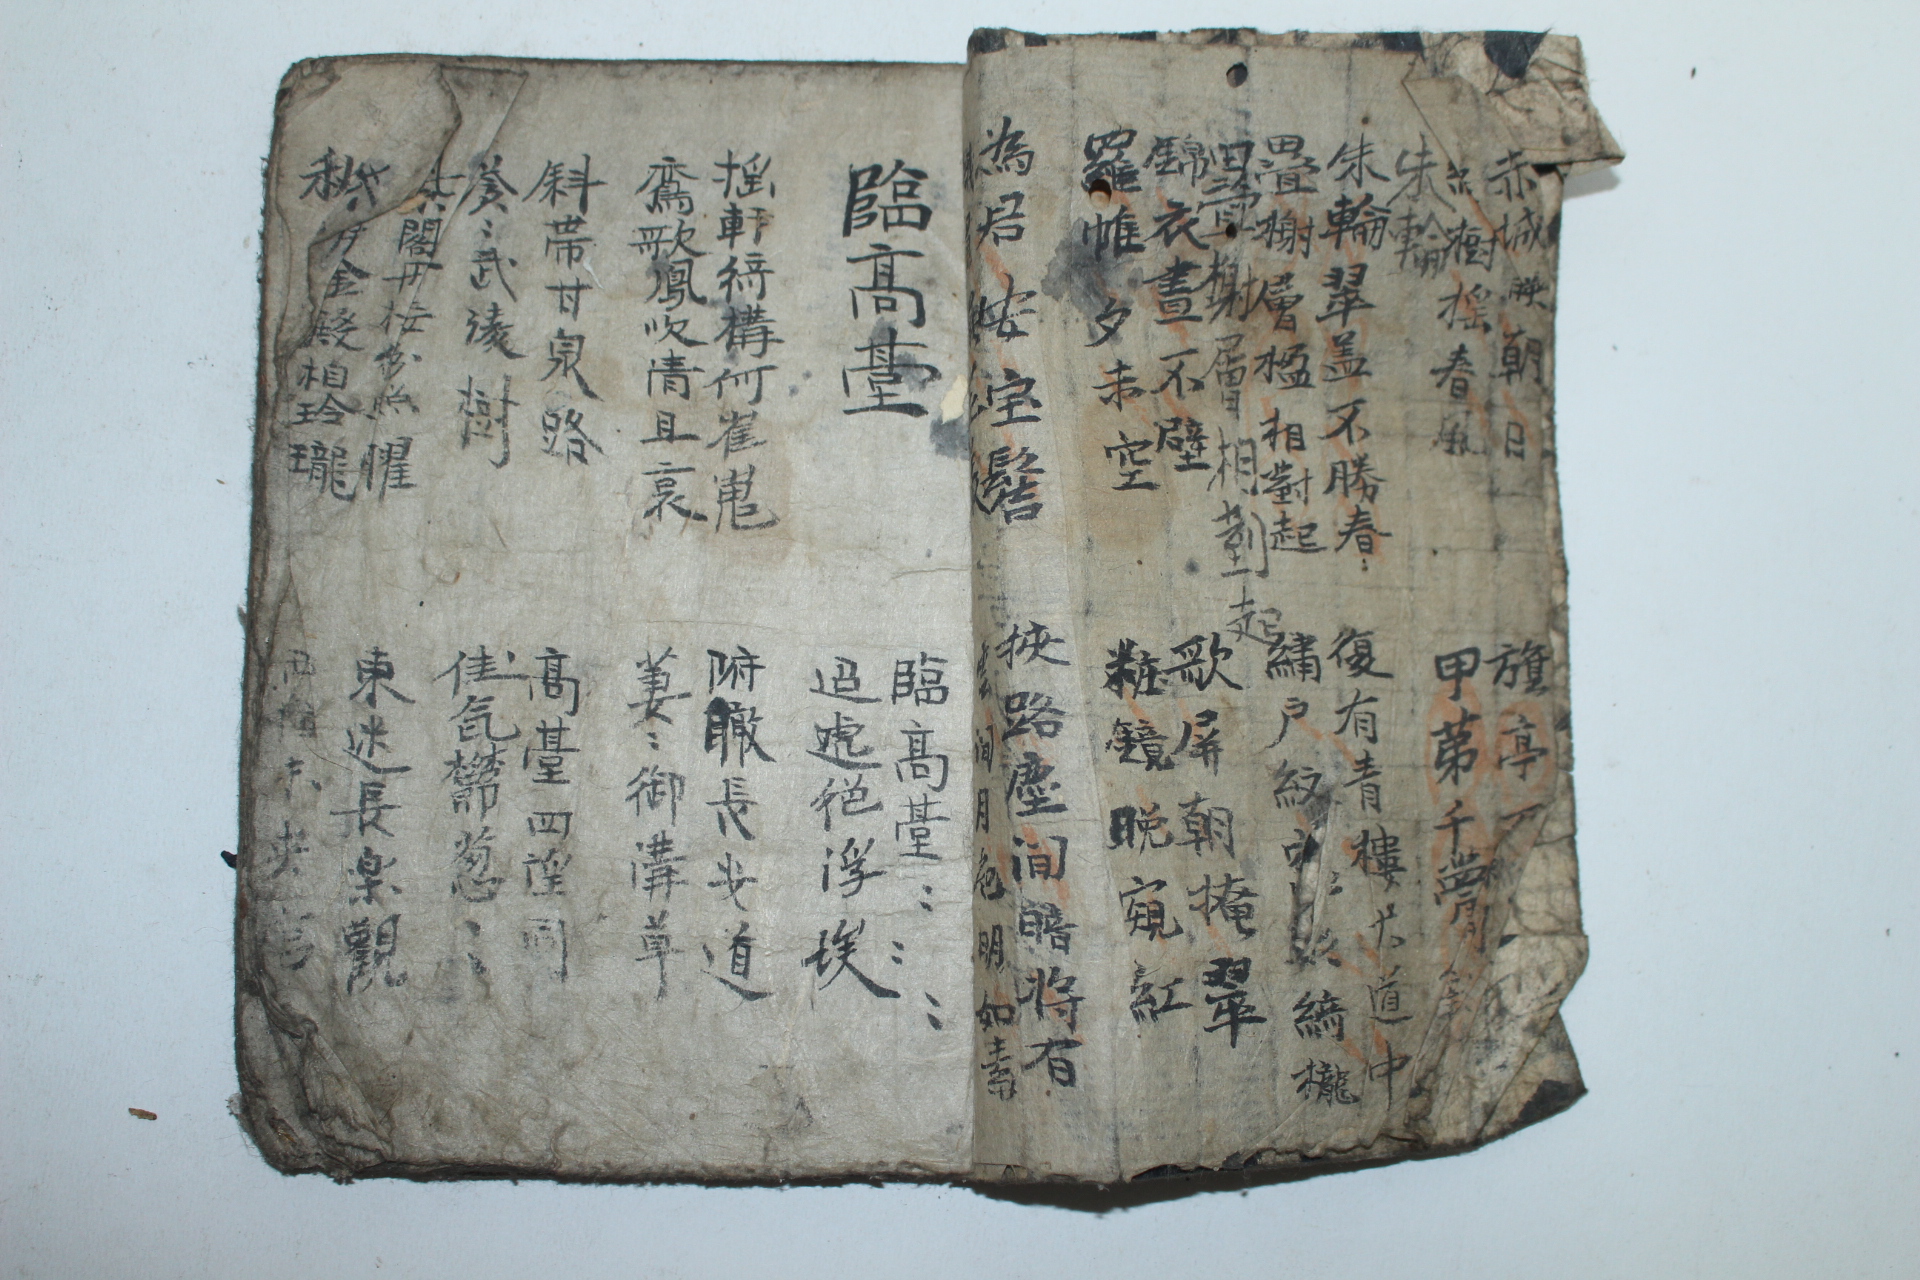 赤城映朝日
樹搖春風
旗亭
甲第千甍
朱輪
朱輪翠盖不勝春
疊榭層楹相對起
疊榭層相對起
復有青樓大道中
繡戶紋 綺櫳
錦衣晝不壁
羅帷夕未空
歌屏朝掩翠
粧鏡晚窺紅
為君安宝髻
挾路塵間暗將有
雲間月色明如素
臨高臺
臨高臺：：：
迢遞絕浮埃
搖軒綺構何崔嵬
鸞歌鳳吹清且哀
俯瞰長安道
萋：御溝草
斜帶甘泉路
蒼：武陵樹
高臺四望同
佳氣鬱葱：：
閣丹樓 照耀
金殿相玲瓏
東迷長樂觀
未央宮